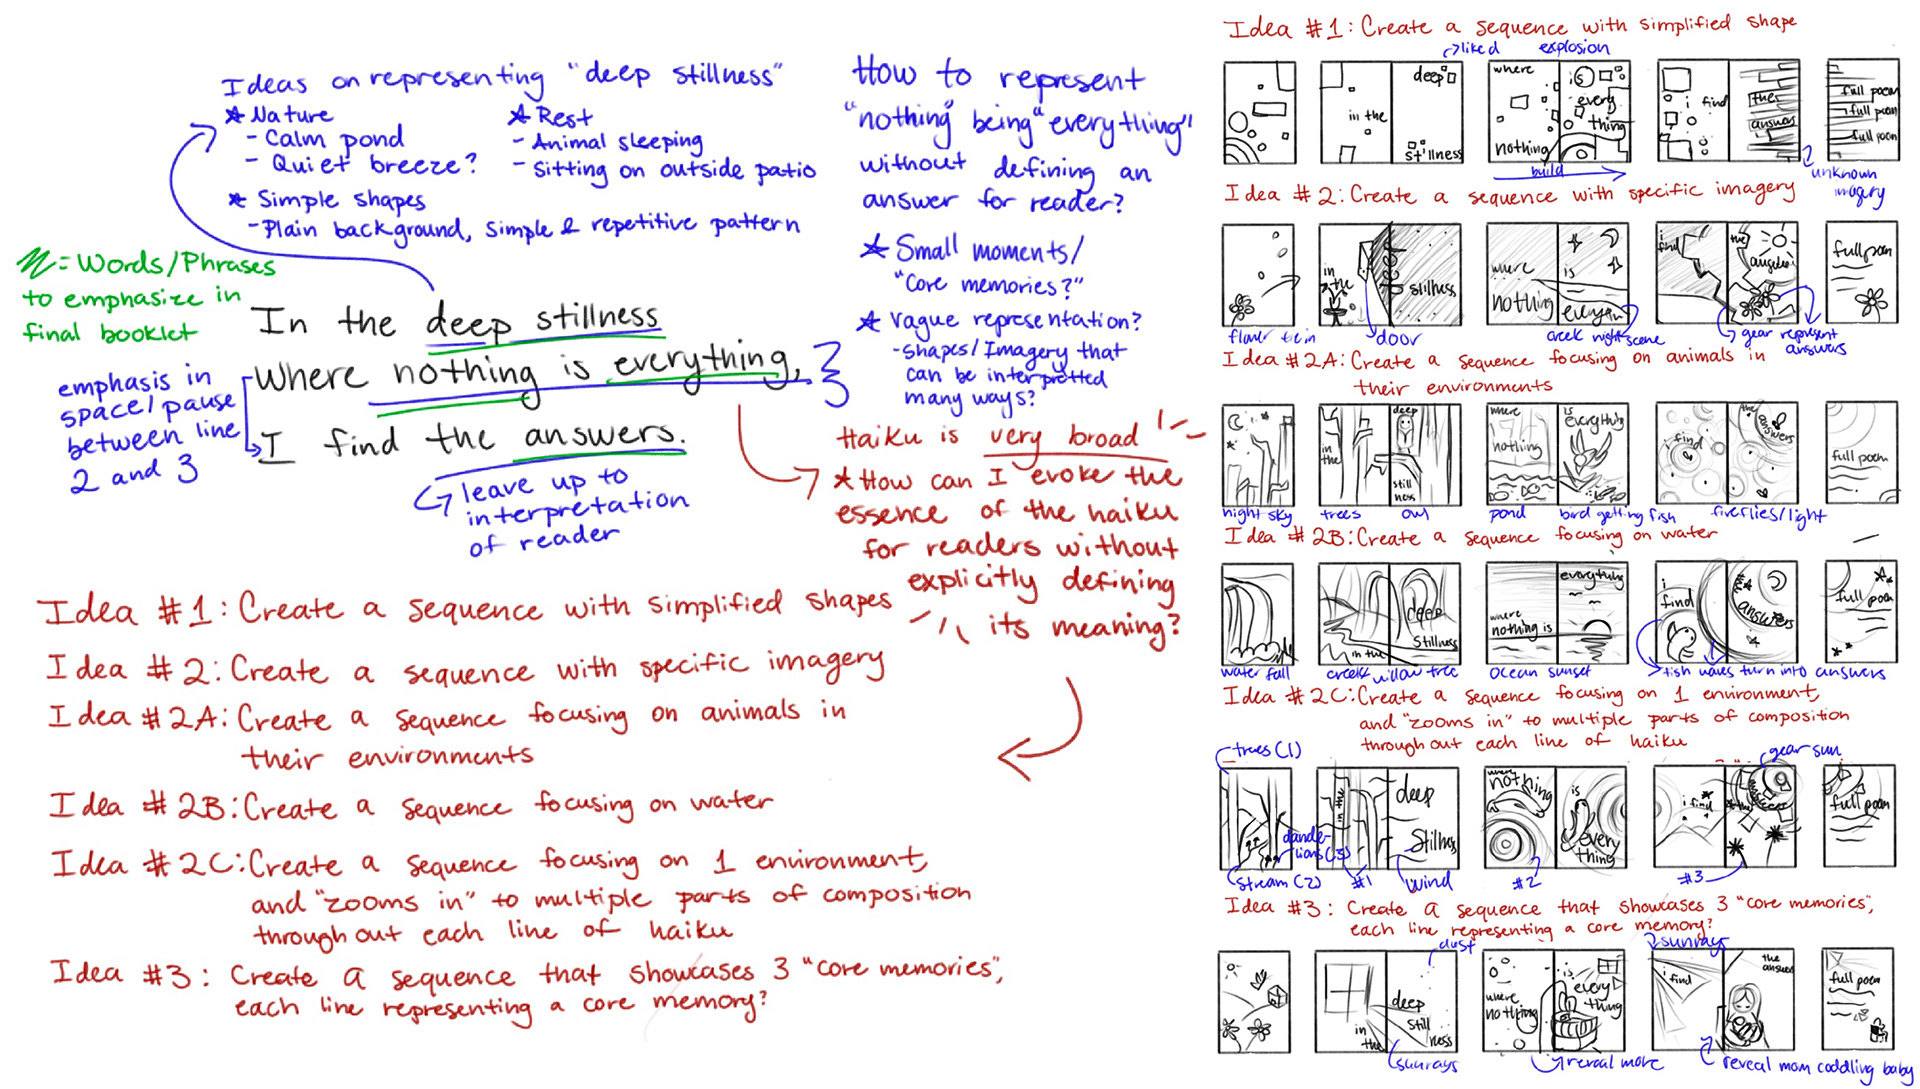 Ideas on representing "deep stillness"
★ Nature
- Calm pond
- Quiet breeze?
★ Rest
- Animal sleeping
- Sitting on outside patio
★ Simple shapes
- Plain background, simple & repetitive pattern
= Words/Phrases
to emphasize in
final booklet
In the deep stillness
Where nothing is everything,
I find the answers.
emphasis in
space/pause
between line
2 and 3
leave up to
interpretation
of reader
How to represent
"nothing" being "everything"
without defining an
answer for reader?
★ Small moments/
"Core memories?"
★ Vague representation?
- shapes/Imagery that
can be interpretted
many ways?
Haiku is very broad
★ How can I evoke the
essence of the haiku
for readers without
explicitly defining
its meaning?
Idea #1: Create a sequence with simplified shapes
Idea #2: Create a sequence with specific imagery
Idea #2A: Create a sequence focusing on animals in
their environments
Idea #2B: Create a sequence focusing on water
Idea #2C: Create a sequence focusing on 1 environment,
and "zooms in" to multiple parts of composition
through out each line of haiku
Idea #3: Create a sequence that showcases 3 "core memories",
each line representing a core memory?
Idea #1: Create a sequence with simplified shape
liked
explosion
in the
deep
stillness
where
nothing
is
every
thing
i find
the
answers
full poem
full poem
full poem
build
unknown
imagery
Idea #2: Create a sequence with specific imagery
in
the
deep
stillness
where
nothing
is
everything
i find
the
full poem
door
creek night scene
gear represent
answers
Idea #2A: Create a sequence focusing on animals in
their environments
in
the
deep
still
ness
where
nothing
is
everything
i find
the
answers
full poem
night sky
trees
owl
pond
bird getting fish
fireflies/light
Idea #2B: Create a sequence focusing on water
in the
deep
stillness
where
nothing is
everything
i
find
the
answers
full poem
water fall
creek willow tree
ocean sunset
fish waves turn into answers
Idea #2C: Create a sequence focusing on 1 environment,
and "zooms in" to multiple parts of composition
through out each line of haiku
trees (1)
gear sun
in the
deep
stillness
where
nothing
is
every
thing
i find
the
full poem
dande-
lions (3)
stream (2)
#1
wind
#2
#3
Idea #3: Create a sequence that showcases 3 "core memories",
each line representing a core memory?
dust
sunrays
in
the
deep
still
ness
where
nothing
is
every
thing
i find
the
answer
full poem
sunrays
reveal more
reveal mom coddling baby